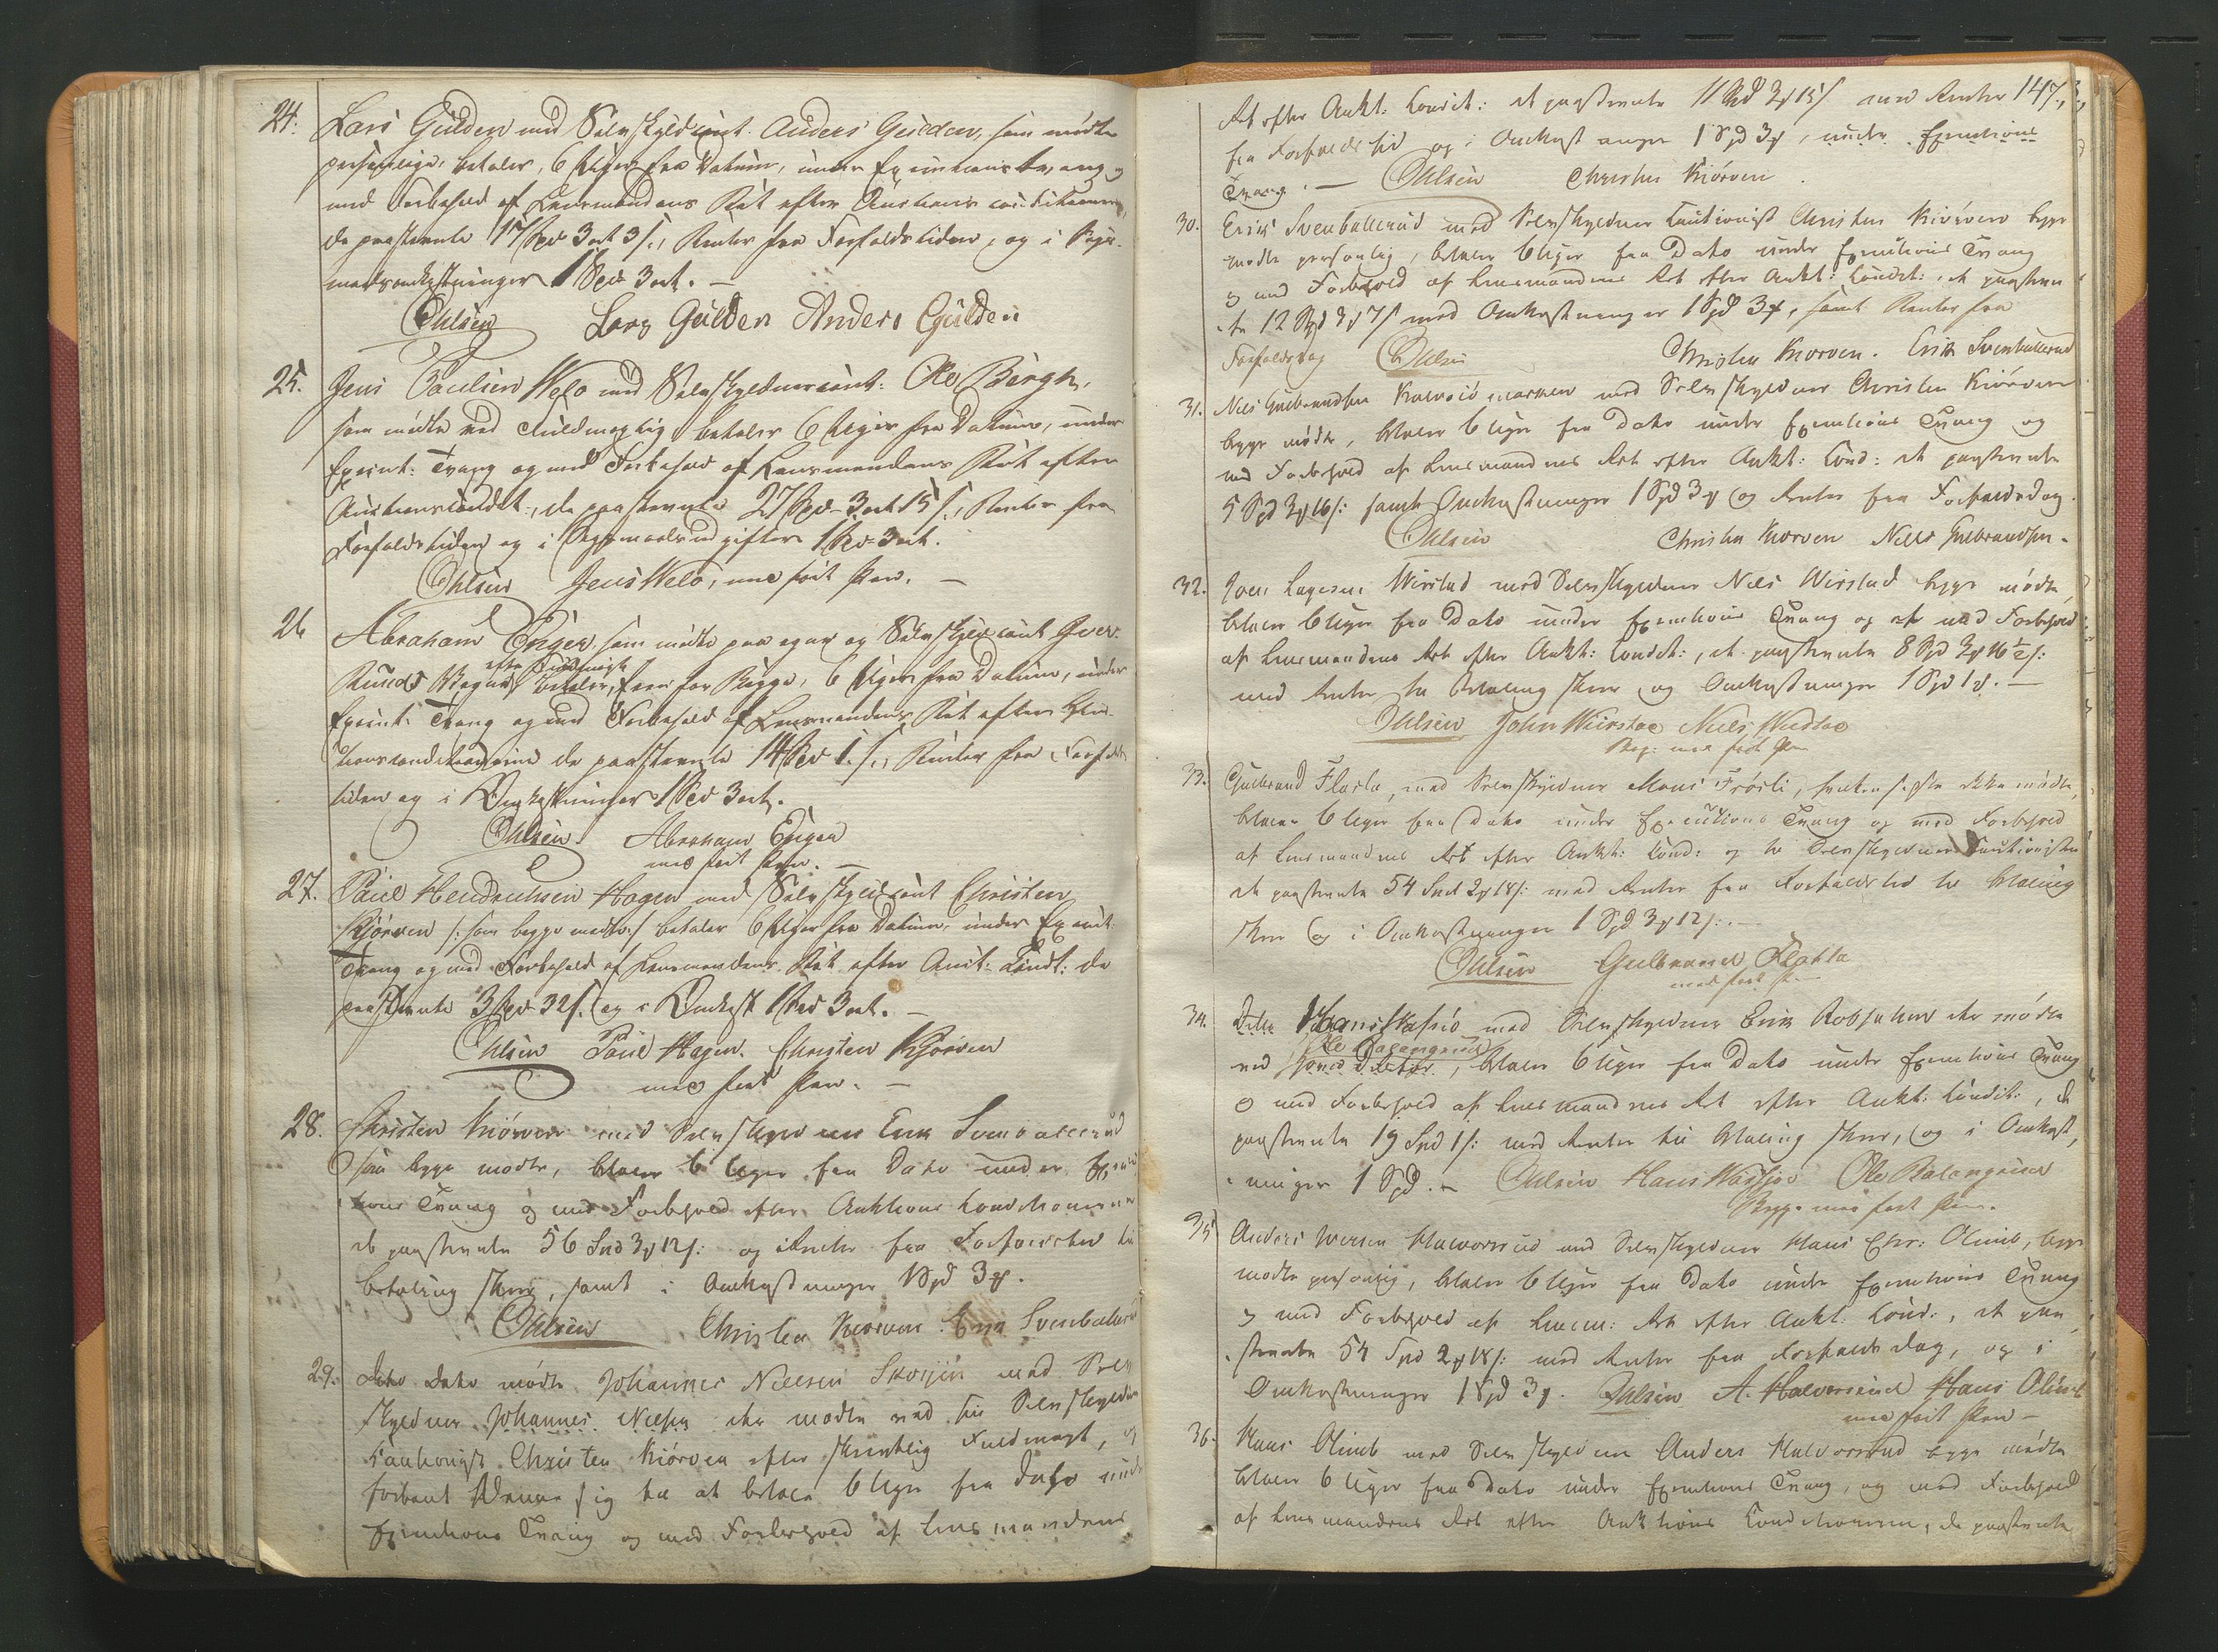 24. Lars Gulden med Selvskyldcaut. Anders Gulden, som mødte
personlige, betaler, 6 Uger fra Datum, under Executions tvang og
med Forbehold af Lensmandens Ret efter Auctions conditionerne,
de paastævnte 17 Spd 3 ort 3 s., Renter fra Forfaldstiden, og i Rigs-
maalsomkostninger 1 Spd 3 ort. —
Ohlsen Lars Gulden Anders Gulden
25. Jens Paulsen Welo med Selvskyldnercaut: Ole Bergh,
som mødte ved Fuldmægtig betaler 6 Uger fra Datum, under
Execut: Tvang og med Forbehold af Lensmandens Ret efter
Auctionscondit:, de paastævnte 27 Spd 3 ort 15 s., Renter fra
Forfaldstiden og i Rigsmaalsudgifter 1 Spd 3 ort.
Ohlsen Jens Welo, med ført Pen. —
26 Abraham Enger som mødte paa egne og Selvskyldcaut Gver-
efter Fuldmagt
betaler, een for Begge, 6 Uger fra Datum, under
Execut: Tvang og med Forbehold af Lensmandens Ret efter Auc-
tionsconditionerne de paastævnte 14 Spd 1 s., Renter fra Forfalds
tiden og i Omkostninger 1 Spd 3 ort.
Ohlsen Abraham Enger
med ført Pen. —
27. Paul Hendrichsen Hagen med Selvskyldcaut Christen
Kjørven /: som begge mødte :/ betaler 6 Uger fra Datum, under Execut:
Tvang og med Forbehold af Lensmandens Ret efter Auct: Condt: de
paastævnte 3 Spd 32 s. og i Omkost 1 Spd 3 ort. —
Ohlsen Paul Hagen. Christen Kjørven
med ført Pen. —
28. Christen Kiørven med Selvskyldner Erik Svenballerud
som begge mødte, betaler 6 Uger fra Dato under Execu
tions Tvang og med Forbehold efter Auktions Conditionerne
de paastævnte 56 Spd 3 ß 12 s: og Renter fra Forfaldstid til
betaling skeer, samt i Omkostninger 1 Spd 3 ß.
Ohlsen Christen Kiørven. Erik Svenballerud
29. Dato mødte Johannes Nielsen med Selv
skyldner Johannes Nielsen der mødte ved sin Selvskyldner
Cautionist Christen Kiørven efter skrivtlig Fuldmagt, og
forbandt sig til at betale 6 Uger fra Dato under
Executions Tvang og med Forbehold af Lensmandens
Ret efter Aukt: Condit: de paastævnte 11 Spd 3 ß 15 s med Renter 14 s.,
fra Forfaldstid og i Omkostninger 1 Spd 3 ß, under Executions
Tvang. — Ohlsen Christen Kiørven.
30. Erik Svenballerud med Selvskyldner Cautionist Christen Kiørven begge
mødte personlig, betaler 6 Uger fra Dato under Executions Tvang
og med Forbehold af Lensmandens Ret efter Aukt: Condit:, de paastævn
te 12 Spd 3 ß 7 s med Omkostninger 1 Spd 3 ß, samt Renter fra
Forfaldsdag Ohlsen Christen Kiørven. Erik Svenballerud
31. Niels Gulbrandsen med Selvskyldner Christen Kiørven
begge mødte, betaler 6 Uger fra Dato under Executions Tvang og
med Forbehold af Lensmandens Ret efter Aukt: Cond: de paastævnte
5 Spd 3 ß 16 s: samt Omkostninger 1 Spd 3 ß og Renter fra Forfaldsdag.
Ohlsen Christen Kiørven Niels Gulbrandsen.
32. Joen Larsen Wirstad med Selvskyldner Niels Wirstad begge mødte,
betaler 6 Uger fra Dato under Executions Tvang og med Forbehold
af Lensmandens Ret efter Aukt: Condit:, de paastævnte 8 Spd 3 ß 16 ½ s:
med Renter til betaling skeer og Omkostninger 1 Spd 1 ß. —
Ohlsen John Wirstad Niels Wirstad
Beg: med ført Pen
33. Gulbrand Flatla, med Selvskyldner Mons Frøsli, hvilken sidste ikke mødte,
betaler 6 Uger fra Dato under Executions Tvang og med Forbehold
af Lensmandens Ret efter Aukt: Cond: og til Selvskyldner Cautionisten
de paastævnte 54 Spd 2 ß 18 s: med Renter fra Forfaldstid til betaling
skeer og i Omkostninger 1 Spd 3 ß 12 s:.
Ohlsen Gulbrand Flatla
med ført P. —
34. Hans med Selvskyldner Erik der mødte
Ole Balangrud
ved, betaler 6 Uger fra Dato under Executions Tvang
og med Forbehold af Lensmandens Ret efter Aukt: Condit:, de
paastævnte 19 Spd 1 s: med Renter til betaling skeer, og i Omkost,
ninger 1 Spd. — Ohlsen Hans Ole Balangrud
Begge med ført Pen.
35 Anders Iversen Halvorsrud med Selvskyldner Hans Chr: Olimb, begge
mødte personlig, betaler 6 Uger fra Dato under Executions Tvang
og med Forbehold af Lensm: Ret efter Aukt: Cond:, de paa
stævnte 54 Spd 2 ß 18 s: med Renter fra Forfalds dag, og i
Omkostninger 1 Spd 3 ß. Ohlsen A. Halvorsrud Hans Olimb
med ført Pen —
36. Hans Olimb med Selvskyldner Anders Halvorsrud begge mødte
betaler 6 Uger fra Dato under Executions Tvang, og med Forbehold
af Lensmandens Ret efter Auktions Conditionerne, de paastævnte